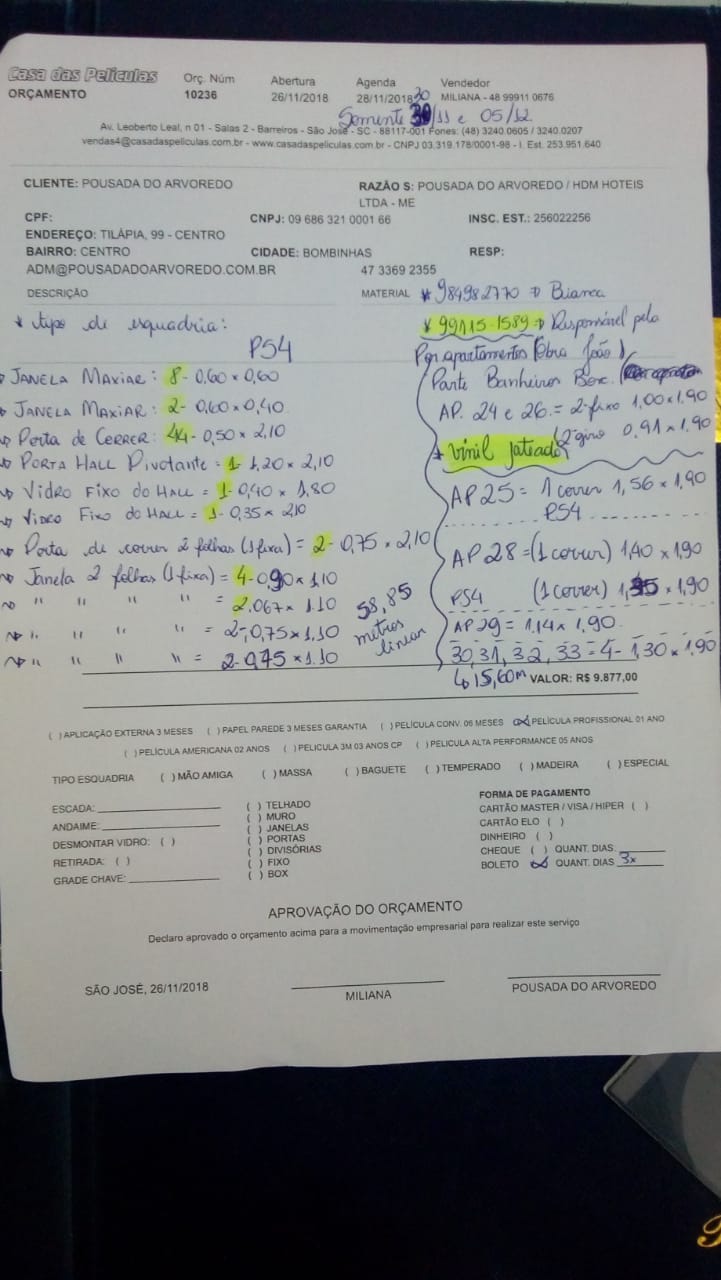 Casa das Películas Orç. Núm Abertura Agenda Vendedor
ORÇAMENTO 10236 26/11/2018 28/11/2018 30 MILIANA - 48 99911 0676
Somente 30/11 e 05/12.
Av. Leoberto Leal, n 01 - Salas 2 - Barreiros - São José - SC - 88117-001 Fones: (48) 3240.0605 / 3240.0207
vendas4@casadaspeliculas.com.br - www.casadaspeliculas.com.br - CNPJ 03.319.178/0001-98 - I. Est. 253.951.640
CLIENTE: POUSADA DO ARVOREDO RAZÃO S: POUSADA DO ARVOREDO / HDM HOTEIS
LTDA - ME
CPF: CNPJ: 09 686 321 0001 66 INSC. EST.: 256022256
ENDEREÇO: TILÁPIA, 99 - CENTRO
BAIRRO: CENTRO CIDADE: BOMBINHAS RESP:
ADM@POUSADADOARVOREDO.COM.BR 47 3369 2355
DESCRIÇÃO MATERIAL * 984982770 → Bianca
* tipo de esquadria: * 99115-1589 → Responsável pelo
PS4
Por apartamentos (Obra João)
Parte Banheiros Box.
JANELA MAXIAR: 8 - 0,60 x 0,60
AP. 24 e 26. = 2-fixo 1,00 x 1,90
JANELA MAXIAR: 2 - 0,60 x 0,40
(2 giro 0,91 x 1,90
Porta de CORRER: 44 - 0,50 x 2,10
* vinil jateado
PORTA HALL Pivotante = 1 - 1,20 x 2,10
Vidro Fixo do HALL = 1 - 0,40 x 1,80
AP 25 = 1 correr 1,56 x 1,90
PS4
Vidro Fixo do HALL = 1 - 0,35 x 2,10
Porta de correr 2 folhas (1 fixa) = 2 - 0,75 x 2,10
AP 28 = (1 correr) 1,40 x 1,90
Janela 2 folhas (1 fixa) = 4 - 0,90 x 1,10
PS4 (1 correr) x 1,90
" " " " = 2.067 x 1.10
58,85 metros linear
AP 29 = 1,14 x 1,90.
" " " " = 2 - 0,75 x 1,10
30, 31, 32, 33 = 4 - 1,30 x 1,90
" " " " = 2 - 0,45 x 1.10
15,60m VALOR: R$ 9.877,00
( ) APLICAÇÃO EXTERNA 3 MESES ( ) PAPEL PAREDE 3 MESES GARANTIA ( ) PELÍCULA CONV. 06 MESES (x) PELÍCULA PROFISSIONAL 01 ANO
( ) PELÍCULA AMERICANA 02 ANOS ( ) PELICULA 3M 03 ANOS CP ( ) PELICULA ALTA PERFORMANCE 05 ANOS
TIPO ESQUADRIA ( ) MÃO AMIGA ( ) MASSA ( ) BAGUETE ( ) TEMPERADO ( ) MADEIRA ( ) ESPECIAL
ESCADA: ( ) TELHADO FORMA DE PAGAMENTO
ANDAIME: ( ) MURO CARTÃO MASTER / VISA / HIPER ( )
DESMONTAR VIDRO: ( ) ( ) JANELAS CARTÃO ELO ( )
RETIRADA: ( ) ( ) PORTAS DINHEIRO ( )
GRADE CHAVE: ( ) DIVISÓRIAS CHEQUE ( ) QUANT. DIAS
( ) FIXO BOLETO (x) QUANT. DIAS 3x
( ) BOX
APROVAÇÃO DO ORÇAMENTO
Declaro aprovado o orçamento acima para a movimentação empresarial para realizar este serviço
SÃO JOSÉ, 26/11/2018 MILIANA POUSADA DO ARVOREDO